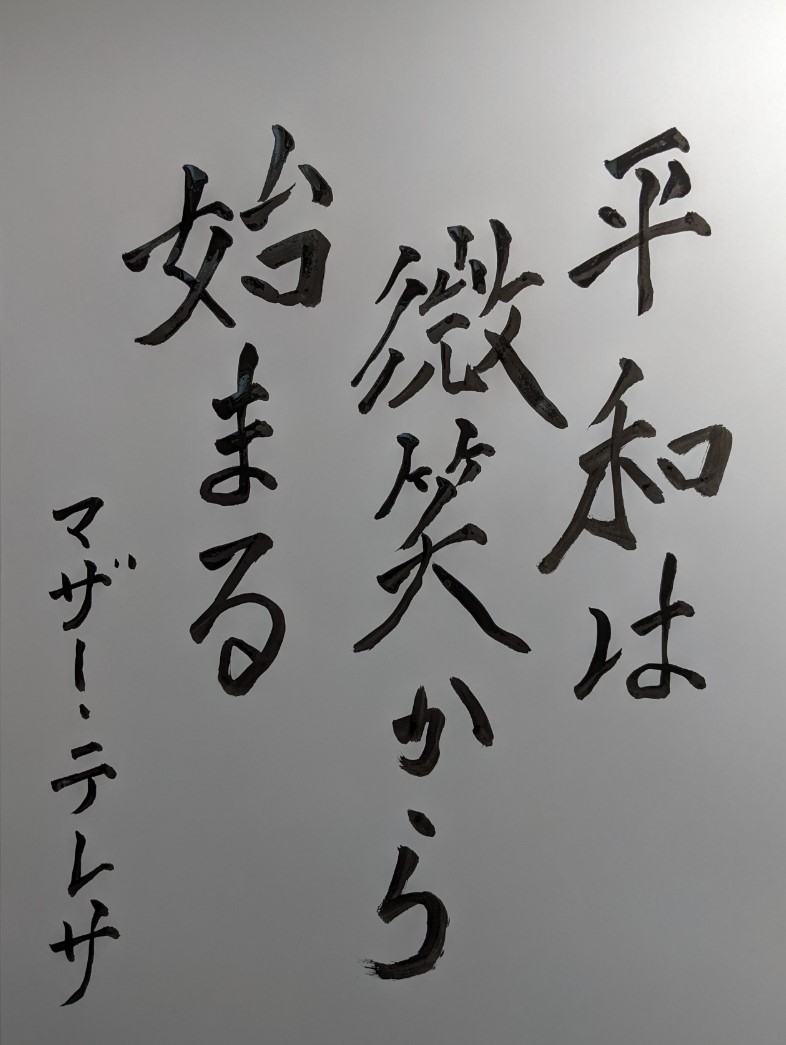 平和は
微笑から
始まる
マザー・テレサ